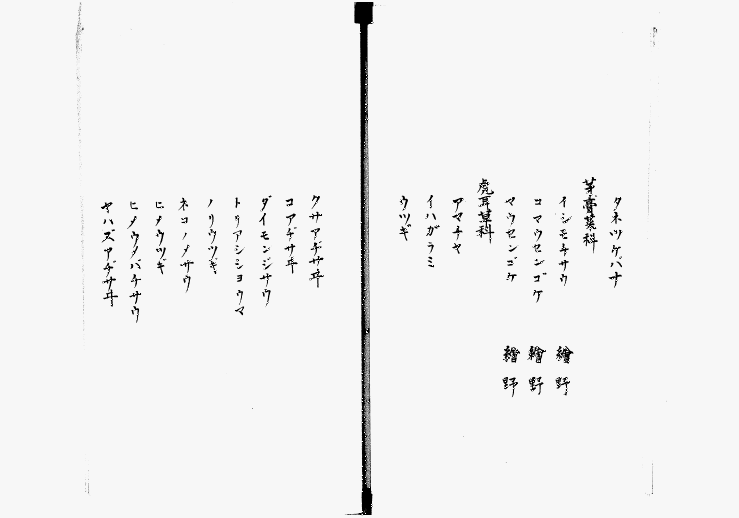 タネツケバナ
茅膏菜科
イシモチサウ 繪 野
コマウセンゴケ 繪 野
マウセンゴケ 繪 野
虎耳草科
アマチヤ
イハガラミ
ウツギ
クサアヂサヰ
コアヂサヰ
ダイモンジサウ
トリアシシヨウマ
ノリウツギ
ネコノメサウ
ヒメウツギ
ヒメウメバチサウ
ヤハズアヂサヰ